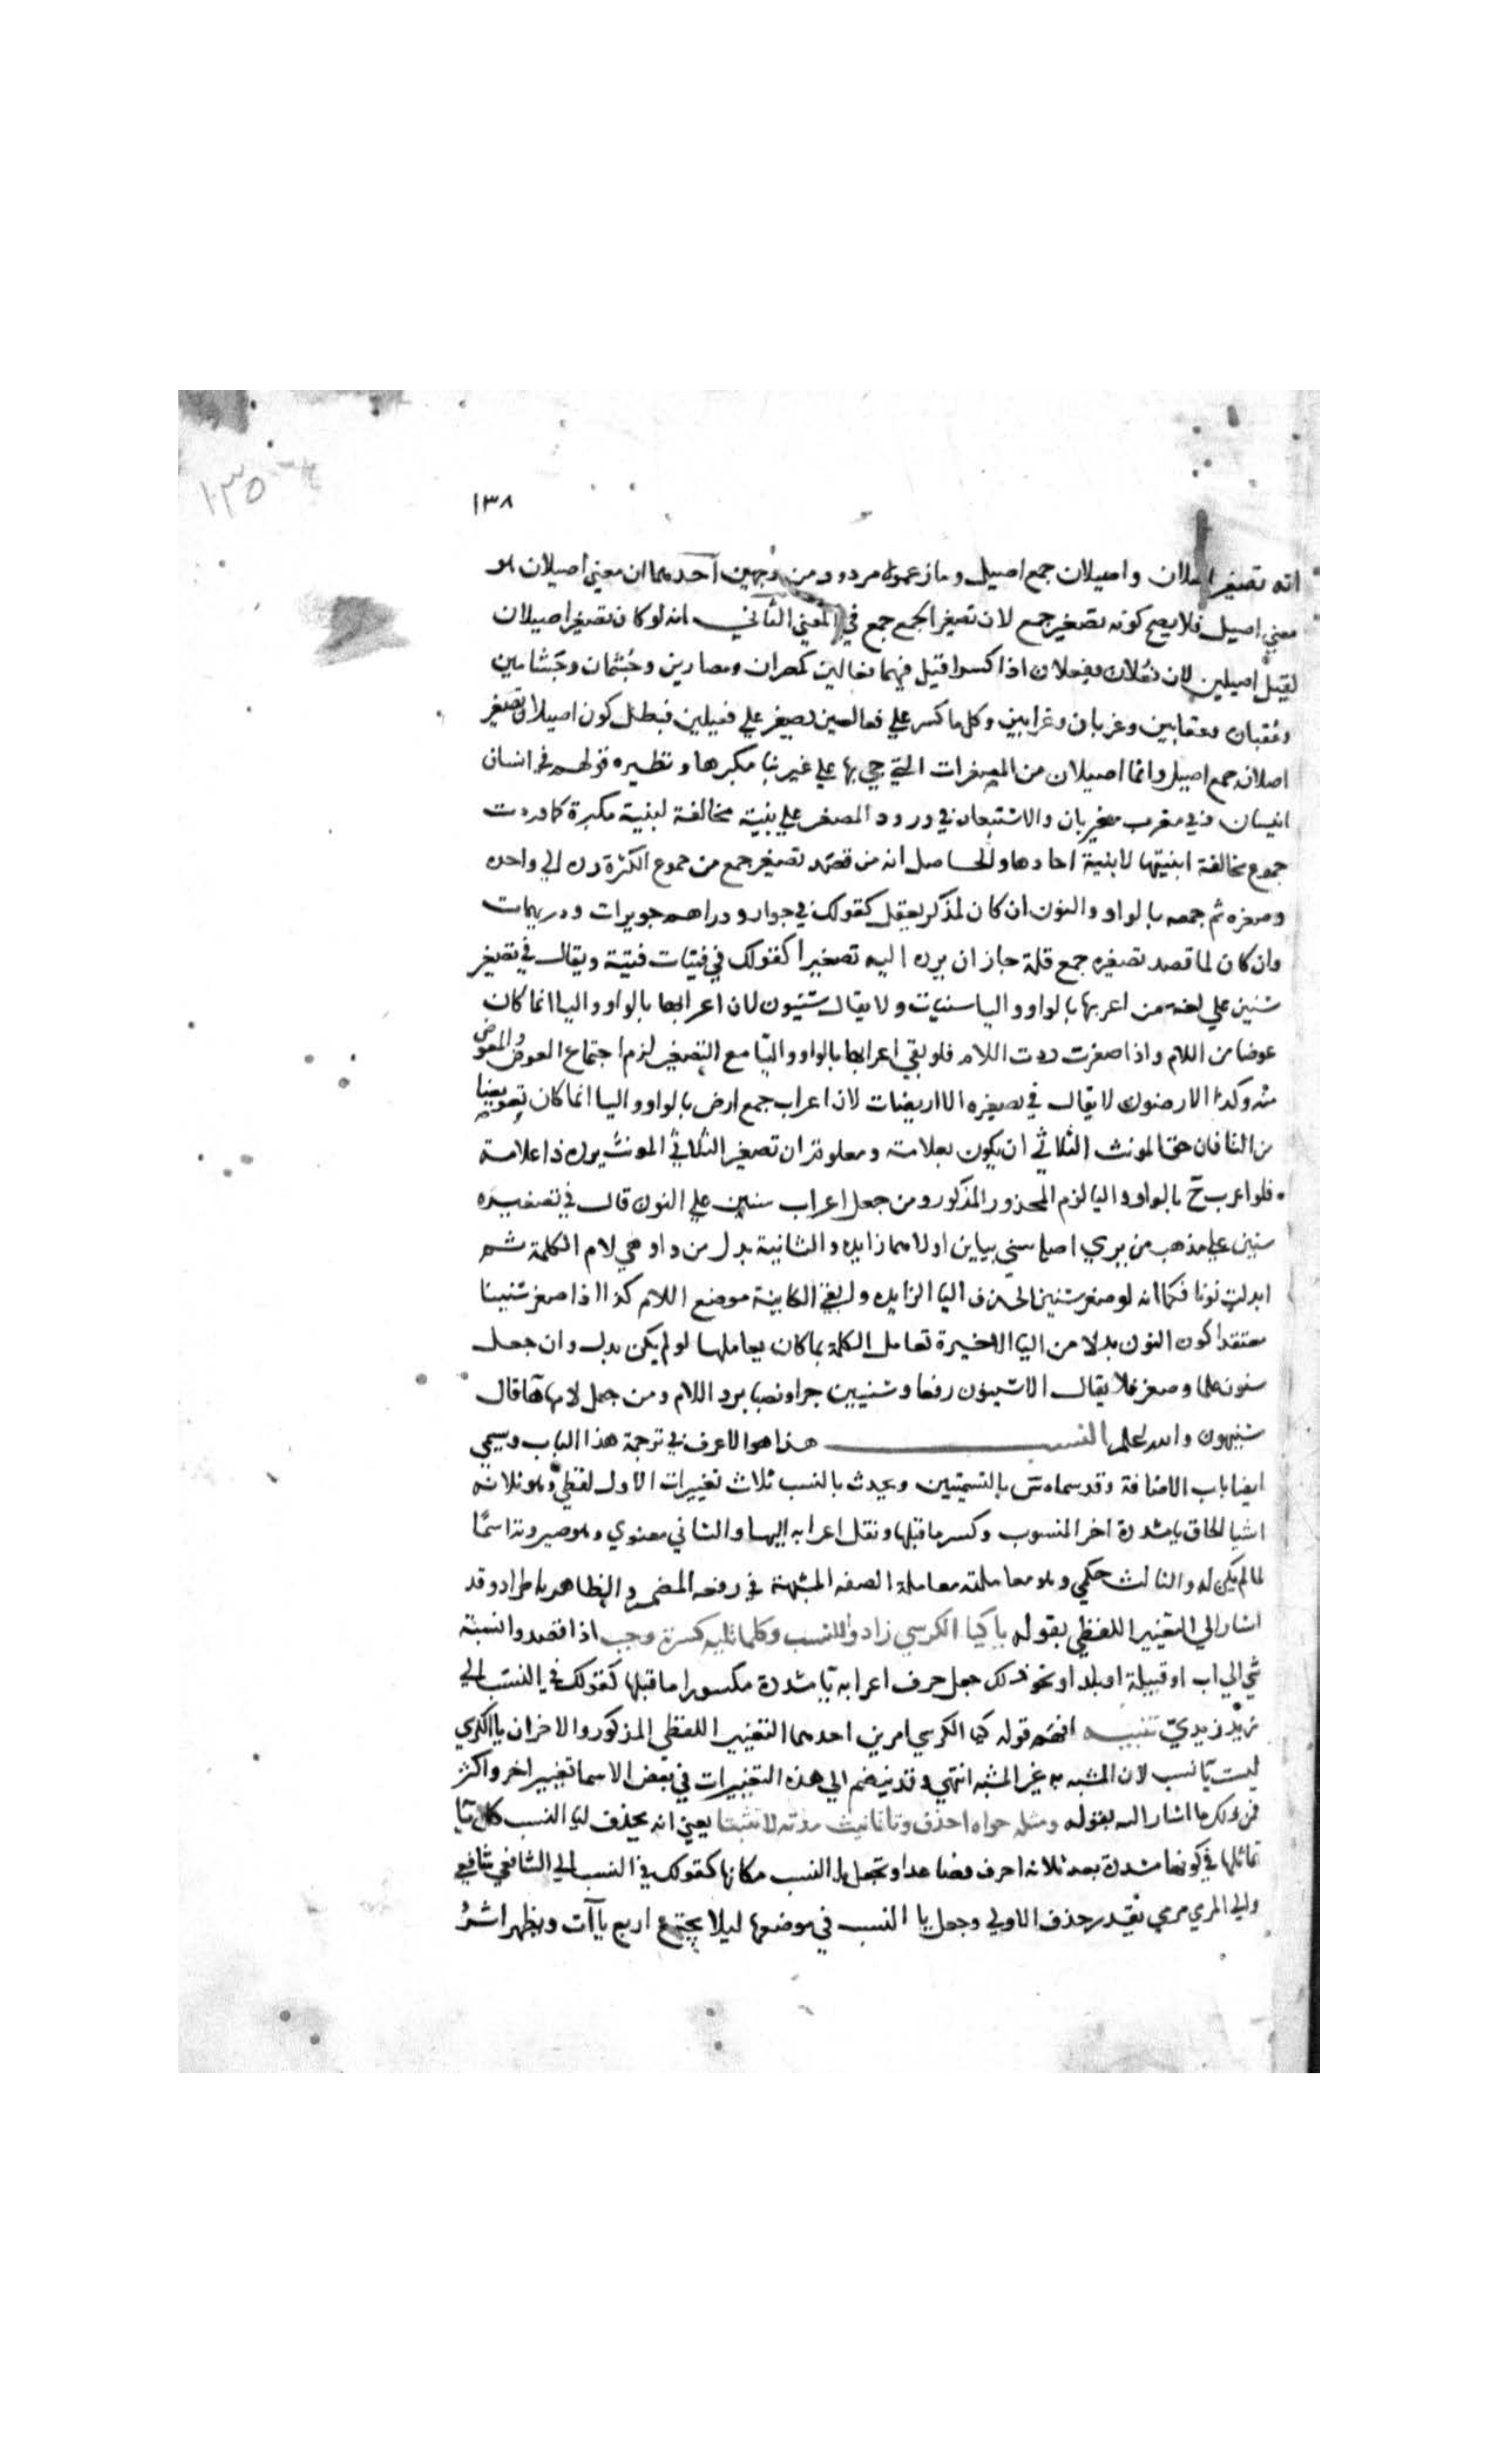 ١٣٥
١٣٨
انه تصغير اصلان واصيلان جمع اصيل وما زعموه مردود من وجهين احدهما ان معني اصيلان هو
معني اصيل فلا يصح كونه تصغير جمع لان تصغير الجمع جمع في المعني الثاني انه لو كان تصغير اصيلان
لقيل اصيلين لان فعلان وفعلان اذا كسرا قيل فيهما فعالين كمصران ومصارين وخشمان وخشامين
وعقبان وعقابين وغربان وغرابين وكل ما كسر علي فعالين يصغر علي فعيلين فبطل كون اصيلان تصغير
اصلان جمع اصيل وانما اصيلان من المصغرات التي جي بها علي غير بنا مكبرها ونظيره قولهم في انسان
انيسان وفي مغرب مغيربان والاستبعاد في ورود المصغر علي بنية مخالفة لبنية مكبرة كما وردت
جموع مخالفة ابنيتها لابنية احادها والحاصل انه من قصد تصغير جمع من جموع الكثرة رده الي واحده
وصغره ثم جمعه بالواو والنون ان كان لمذكر يعقل كقولك في جوار ودراهم جويرات ودريهمات
وان كان لما قصد تصغيره جمع قلة جاز ان يرده اليه تصغيرا كقولك في فتيات فتية ويقال في تصغير
سنين علي لغة من اعربها بالواو واليا سنيات ولا يقال سنيون لان اعرابها بالواو واليا انما كان
عوضا من اللام واذا صغرت ردت اللام فلو بقي اعرابها بالواو واليا مع التصغير لزم اجتماع العوض والمعوض
منه وكذا الارضون لا يقال في تصغيره الا اريضات لان اعراب جمع ارض بالواو واليا انما كان تعويضا
من التا فان حق المونث الثلاثي ان يكون بعلامة ومعلوم ان تصغير الثلاثي المونث يرده ذا علامة
فلو اعرب ح بالواو واليا لزم المحذور المذكور ومن جعل اعراب سنين علي النون قال في تصغيره
سنين علي مذهب من يري اصله سني بياين اولاهما زايده والثانية بدل من واو هي لام الكلمة ثم
ابدلت نونا فكما انه لو صغر سنين لحذف اليا الزايده وابقي الكاينة موضع اللام كذا اذا صغر سنينا
معتقدا كون النون بدلا من اليا الاخيرة تعامل الكلمة بما كان يعاملها لو لم يكن بدل وان جعل
سنون علما وصغر فلا يقال الا سنيون رفعا وسنيين جرا ونصبا برد اللام ومن جعل لامها ها قال
سنيهون والله اعلم النسب هذا هو الاعرف في ترجمة هذا الباب ويسمي
ايضا باب الاضافة وقد سماه س بالتسميتين ويحدث بالنسب ثلاث تغييرات الاول لفظي وهو ثلاثه
اشيا الحاق يا مشددة اخر المنسوب وكسر ما قبلها ونقل اعرابه اليها والثاني معنوي وهو صيرورته اسما
لما لم يكن له والثالث حكمي وهو معاملته معاملة الصفه المشبهة في رفعه المضمر والظاهر باطراد وقد
اشار الي التغيير اللفظي بقوله يا كيا الكرسي زادوا للنسب وكل ما تليه كسره وجب اذا قصدوا نسبة
شي الي اب او قبيلة او بلد او نحو ذلك جعل حرف اعرابه يا مشددة مكسورا ما قبلها كقولك في النسب الي
زيد زيدي تنبيه افهم قوله كيا الكرسي امرين احدهما التغيير اللفظي المذكور والاخر ان يا الكرسي
ليست يا نسب لان المشبه به غير المشبه انتهي وقد ينضم الي هذه التغييرات في بعض الاسما تغيير اخر واكثر
فمن ذلك ما اشار اليه بقوله ومثله مما حواه احذف وتا تانيث او مدته لا تثبتا يعني انه يحذف ليا النسب كل يا
تماثلها في كونها مشددة بعد ثلاثه احرف فصاعدا وتجعل يا النسب مكانها كقولك في النسب الي الشافعي شافعي
والي المري مري بتقدير حذف الاولي وجعل يا النسب في موضعها ليلا يجتمع اربع ياآت ويظهر اثر